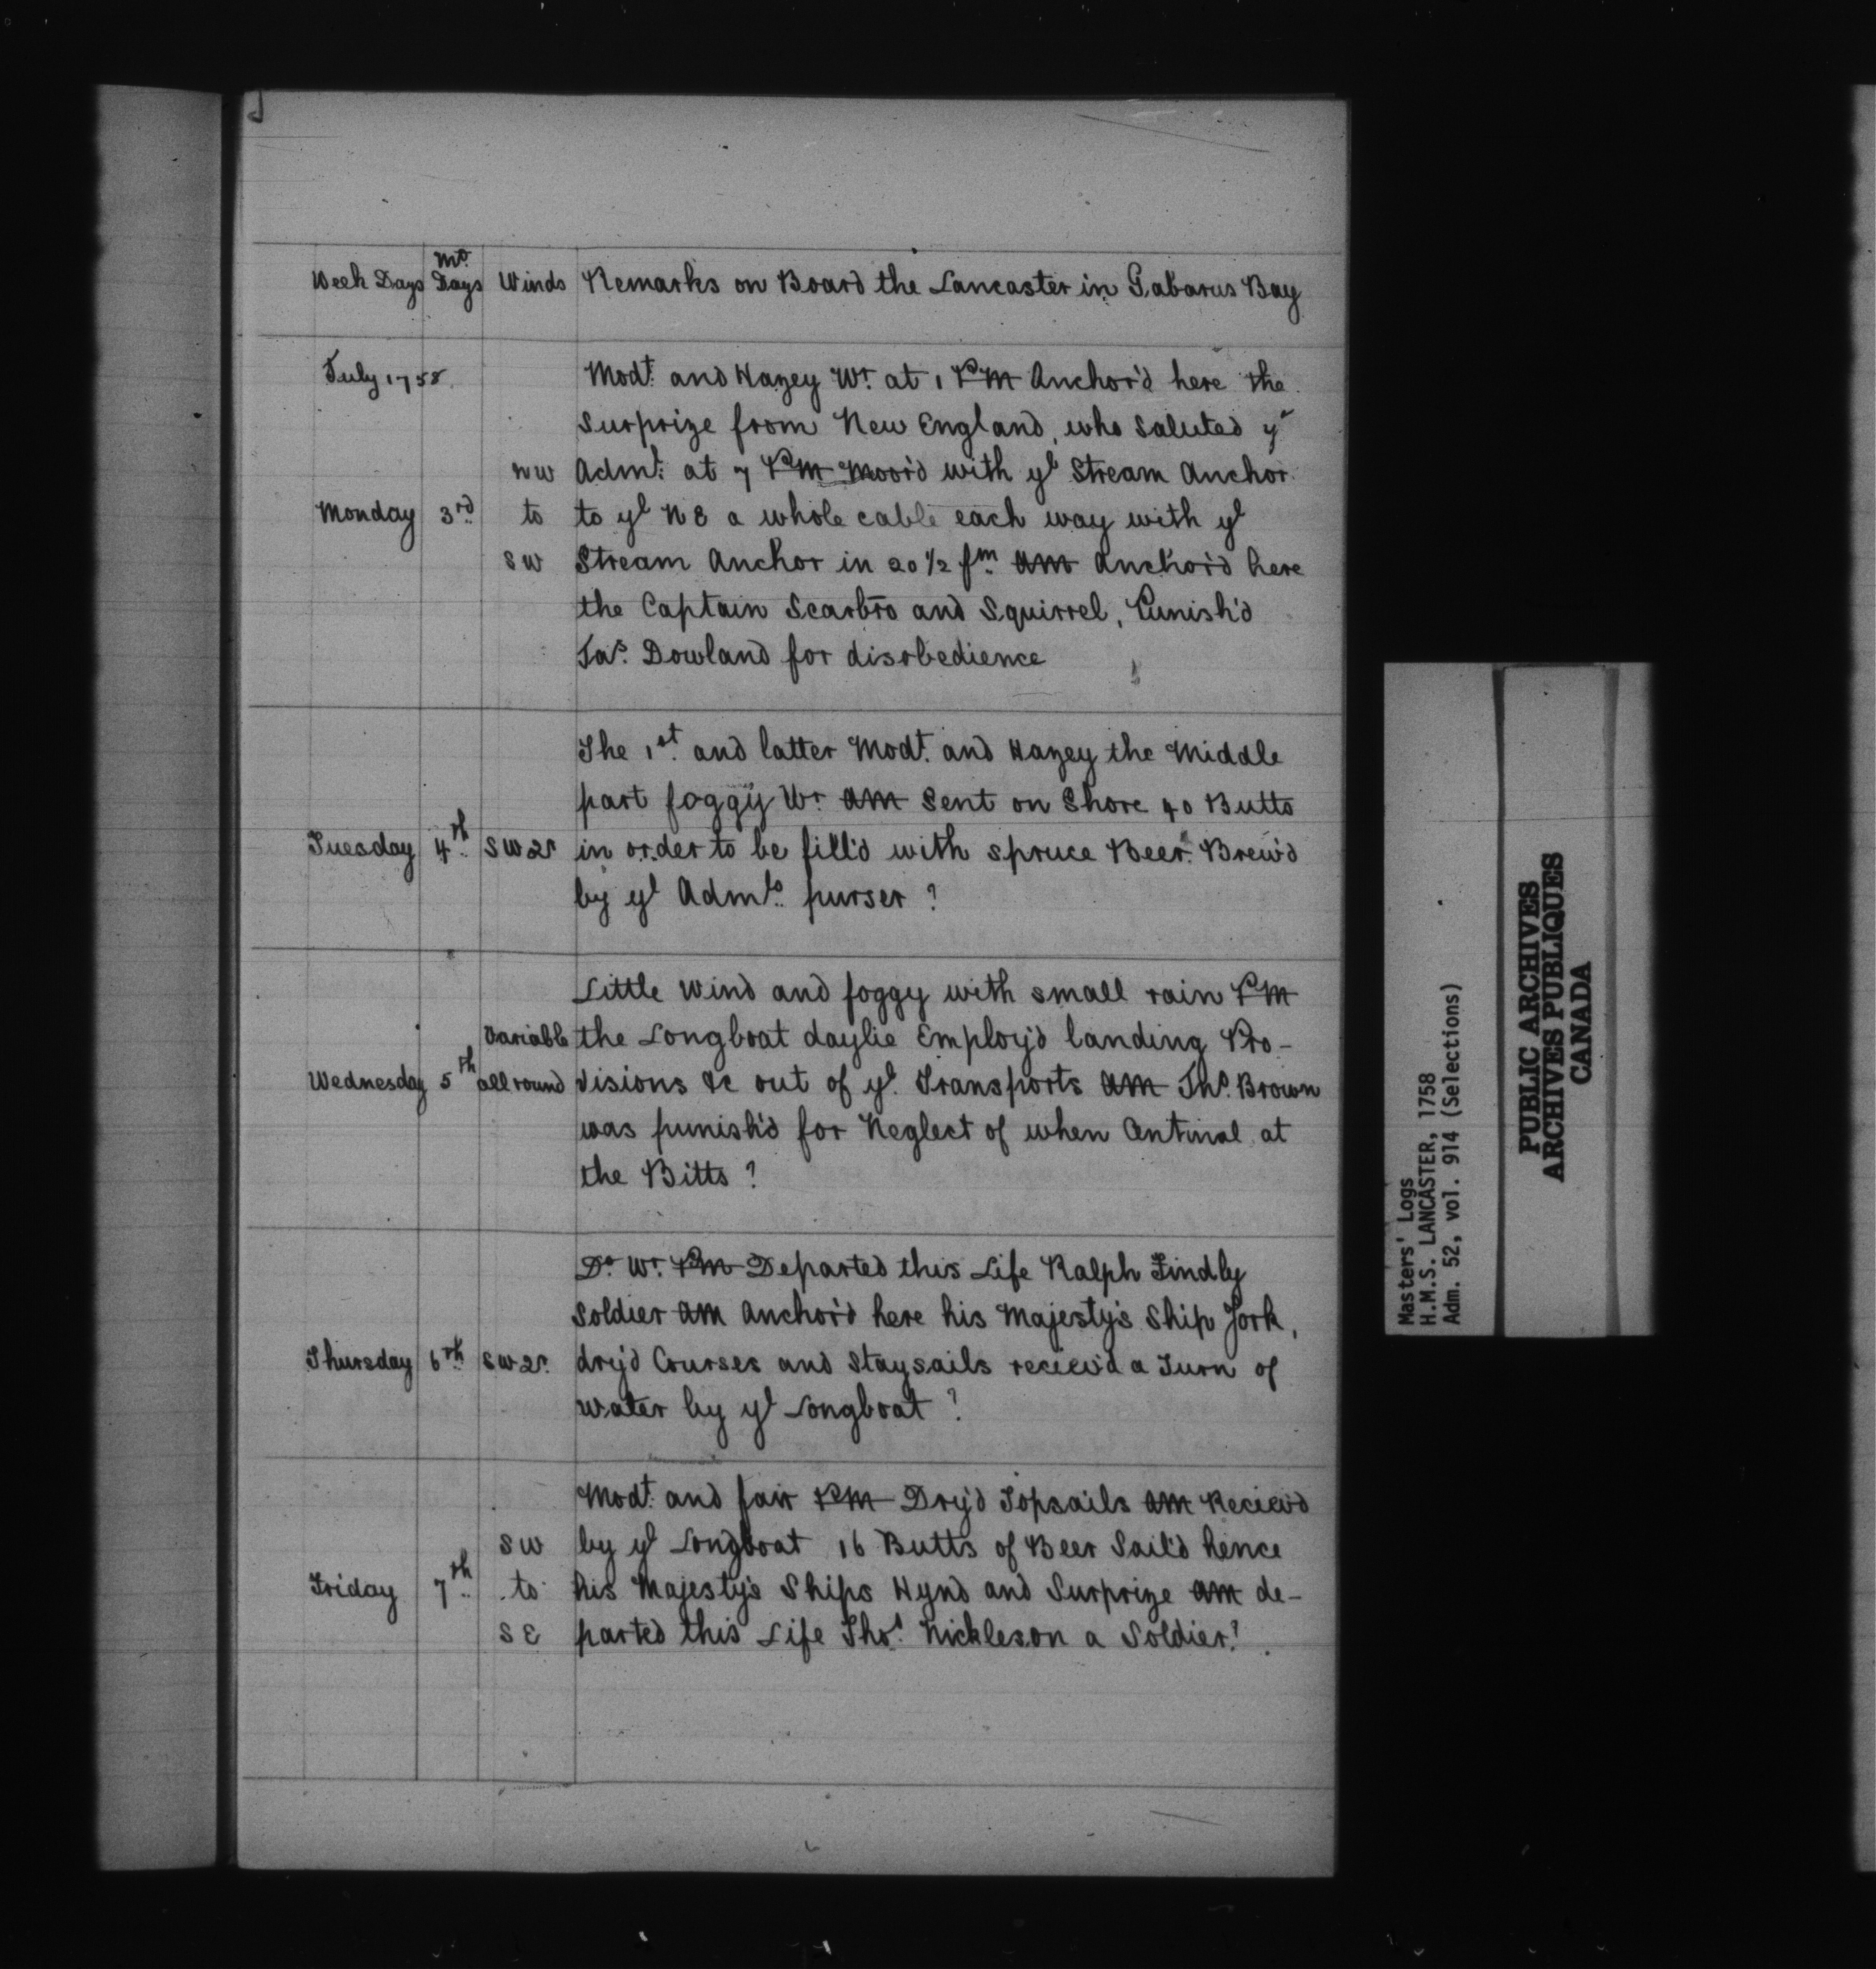 Week Days Mo. Days Winds Remarks on Board the Lancaster in Gabarus Bay
July 1758. Modt. and Hazey Wr. at 1 PM Anchor'd here the
Surprize from New England, who Saluted ye
NW Adml: at 7 PM Moor'd with ye Stream Anchor
Monday 3rd to to ye NE a whole cable each way with ye
SW Stream Anchor in 20 1/2 fm. AM Anchor'd here
the Captain Scarbro and Squirrel, Punish'd
Jas. Dowland for disobedience
The 1st. and latter Modt. and Hazey the Middle
part foggy Wr. AM Sent on Shore 40 Butts
Tuesday 4th SW2r in order to be fill'd with spruce Beer. Brew'd
by ye Admls. purser ?
Little Wind and foggy with small rain PM
Variable the Longboat daylie Employ'd landing Pro-
Wednesday 5th all round visions &c out of ye Transports AM Thos. Brown
was punish'd for Neglect of when Centinal at
the Bitts ?
Do. Wr. PM Departed this Life Ralph Findly
Soldier AM Anchor'd here his Majesty's Ship York,
Thursday 6th SW2r. dry'd Courses and Staysails reciev'd a Turn of
water by ye Longboat ?
Modt. and fair PM Dry'd Topsails AM Reciev'd
SW by ye Longboat 16 Butts of Beer Sail'd hence
Friday 7th to his Majesty's Ships Hynd and Surprize AM de-
SE parted this Life Thos. Nickleson a Soldier ?
Masters' Logs
H.M.S. LANCASTER, 1758
Adm. 52, vol. 914 (Selections)
PUBLIC ARCHIVES
ARCHIVES PUBLIQUES
CANADA